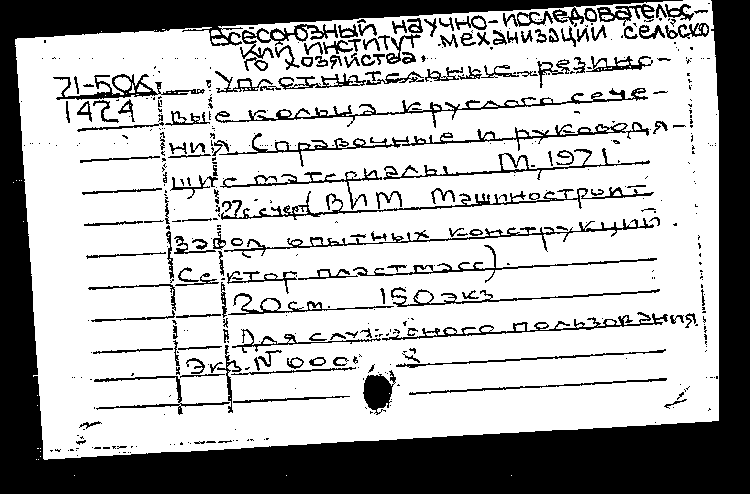 Всесоюзный научно-исследовательс-
кий институт механизации сельско-
го хозяйства.
71-50К Уплотнительные резино-
1424 вые кольца круглого сече-
ния. Справочные и руководя-
щие материалы. М., 1971.
27с с черт. (ВИМ Машиностроит
завод опытных конструкций.
Сектор пластмасс).
20 см. 150 экз
Для служебного пользования
Экз. N 000 8